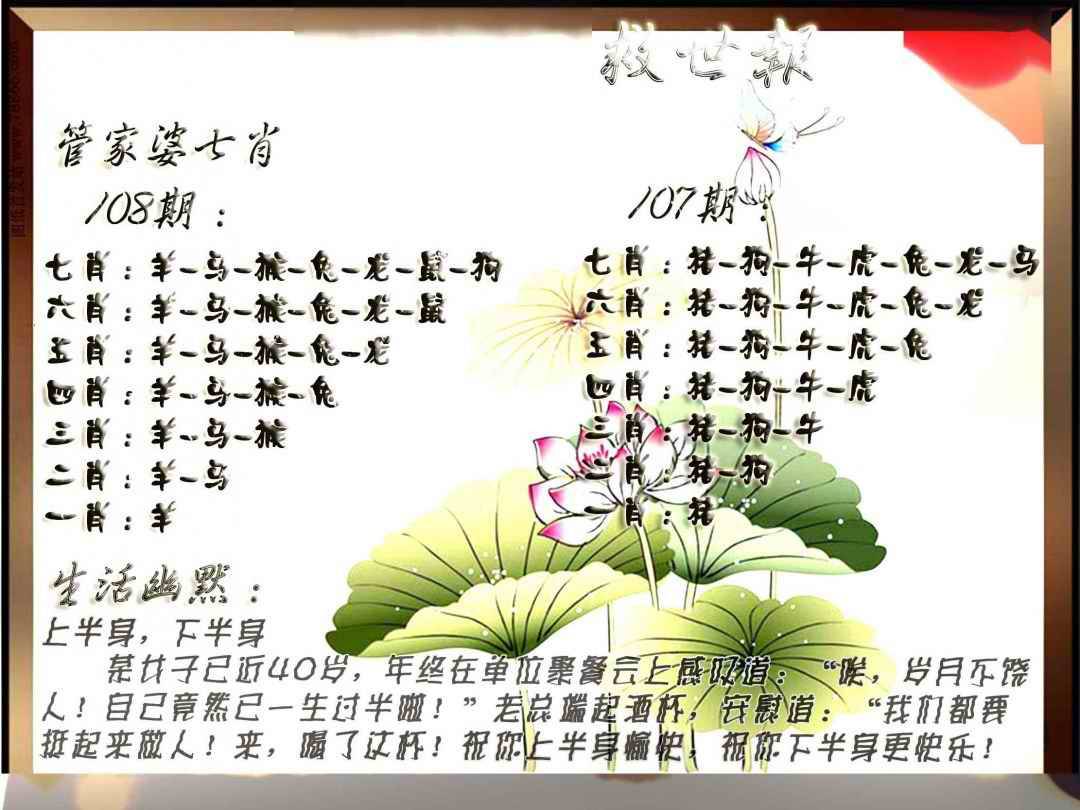 救世報
管家婆七肖
108期：
七肖：羊-马-猴-兔-龙-鼠-狗
六肖：羊-马-猴-兔-龙-鼠
五肖：羊-马-猴-兔-龙
四肖：羊-马-猴-兔
三肖：羊-马-猴
二肖：羊-马
一肖：羊
107期：
七肖：猪-狗-牛-虎-兔-龙-马
六肖：猪-狗-牛-虎-兔-龙
五肖：猪-狗-牛-虎-兔
四肖：猪-狗-牛-虎
三肖：猪-狗-牛
二肖：猪-狗
一肖：猪
生活幽默：
上半身，下半身
某女子已近40岁，年终在单位聚餐会上感叹道：“唉，岁月不饶
人！自己竟然已一生过半啦！”老总端起酒杯，安慰道：“我们都要
挺起来做人！来，喝了这杯！祝你上半身愉快，祝你下半身更快乐！